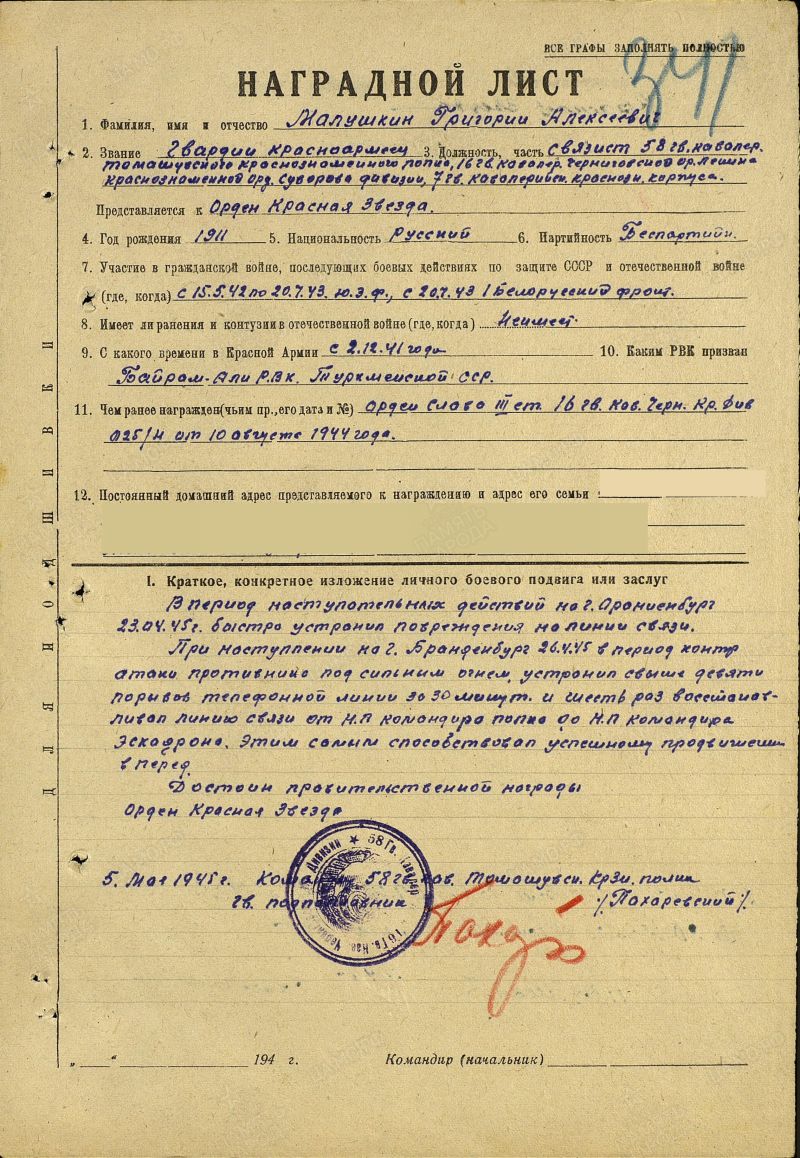 ВСЕ ГРАФЫ ЗАПОЛНЯТЬ ПОЛНОСТЬЮ
341
НАГРАДНОЙ ЛИСТ
1. Фамилия, имя и отчество Малушкин Григории Алексеевич
2. Звание Гвардии красноармеец 3. Должность, часть связист 58 гв. кавалер.
томашувского краснознаменного полка, 16 гв. кавалер. черниговской ор. Ленина
краснознаменной орд. Суворова дивизии, 7 гв. кавалерийск. краснозн. корпуса.
Представляется к Орден Красная Звезда.
4. Год рождения 1911 5. Национальность Русский 6. Партийность Беспартийн.
7. Участие в гражданской войне, последующих боевых действиях по защите СССР и отечественной войне
(где, когда) с 15.5.42 по 20.7.43. ю.з.ф., с 20.7.43 1 Белорусский фронт.
8. Имеет ли ранения и контузии в отечественной войне (где, когда) Неимеет.
9. С какого времени в Красной Армии с 2.12.41 года 10. Каким РВК призван
Байрам-Али Р.В.К. Туркменской ССР.
11. Чем ранее награжден (чьим пр., его дата и №) Орден Слава III ст. 16 гв. Кав. Черн. Кр. Див
025/н от 10 августа 1944 года.
12. Постоянный домашний адрес представляемого к награждению и адрес его семьи
ДЛЯ ПОДШИВКИ
I. Краткое, конкретное изложение личного боевого подвига или заслуг
В период наступательных действий на г. Ораниенбург
23.04.45г. быстро устранил повреждения на линии связи.
При наступлении на г. Бранденбург 26.4.45 в период контр
атаки противника под сильным огнем, устранил свыше девяти
порывов телефонной линии за 30 минут. и шесть раз восстанав-
ливал линию связи от Н.П командира полка до Н.П командира
Эскадрона. Этим самым способствовал успешному продвижению
в перед.
Достоин правительственной награды
Орден Красная Звезда
5. Мая 1945г. 58 гв. кав. Томашувск. Крзн. полка
гв. подполковник /Пахаревский/.
Дивизии ★ 58 Гв.
16 Гв. Кав.
„ “ 194 г. Командир (начальник)